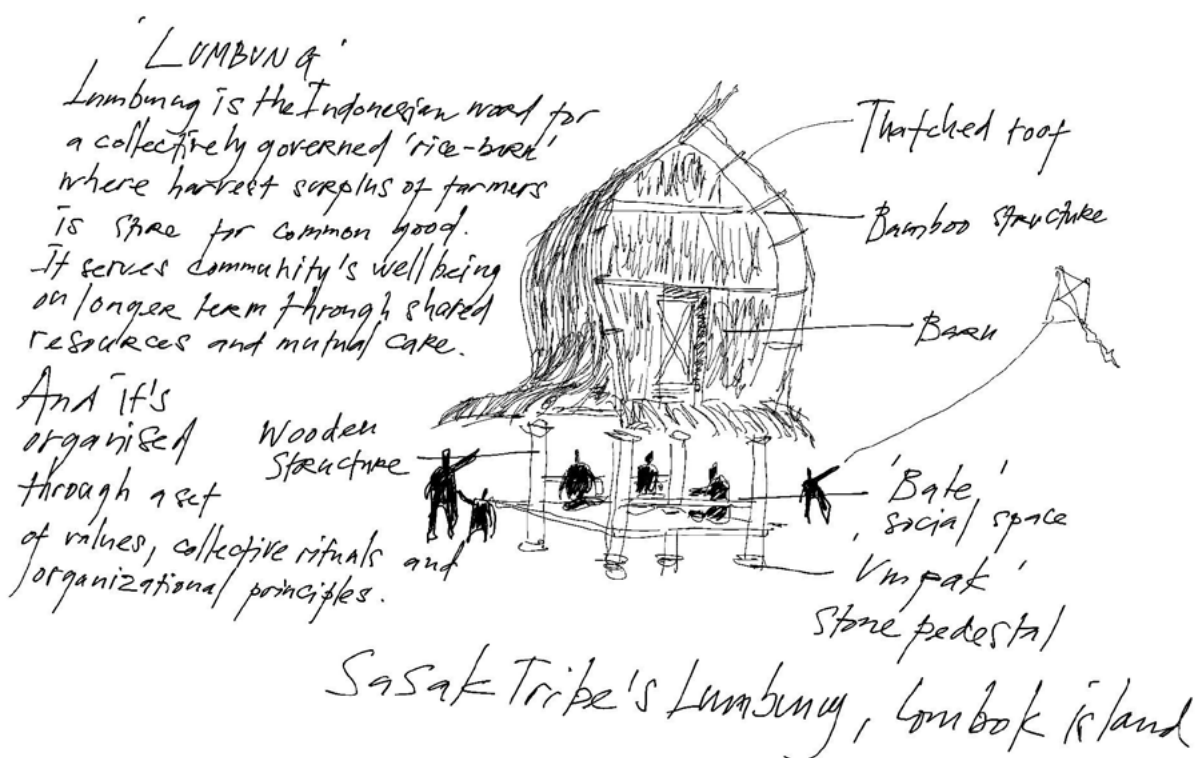 'LUMBUNG'
Lumbung is the Indonesian word for
a collectively governed 'rice-barn'
where harvest surplus of farmers
is store for common good.
It serves community's well being
on longer term through shared
resources and mutual care.
And it's
organised
through a set
of values, collective rituals and
organizational principles.
Thatched roof
Bamboo structure
Baru
Wooden
structure
'Bale'
social space
'Umpak'
stone pedestal
Sasak Tribe's Lumbung, Lombok island